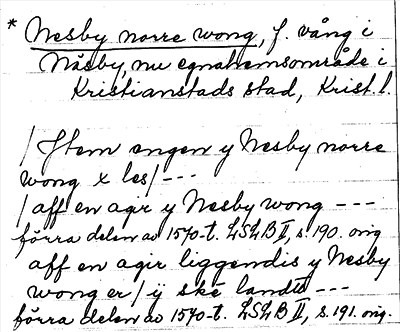 * Nesby norre wong, f. vång i
Näsby, nu egnahemsområde i
Kristianstads stad, Krist. l.
/Jtem engen y Nesby norre
wong x les/ ---
/aff en agir y Nesby wong ---
förra delen av 1570-t. LSLB II, s. 190. orig
aff en agir liggendis y Nesby
wong er/ ij ske landt ---
förra delen av 1570-t. LSLB II, s. 191. orig.